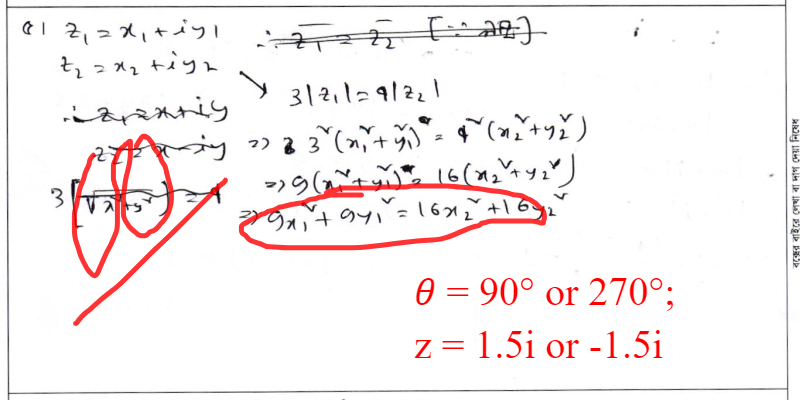 Q1 z₁ = x₁ + iy₁
z₂ = x₂ + iy₂
∴ z̄₁ = z̄₂
∴ z₁ = x + iy
z₂ = x - iy
3|z₁| = 4|z₂|
=> 3²(x₁² + y₁²) = 4²(x₂² + y₂²)
3[√x² + y²] = 4
=> 9(x₁² + y₁²) = 16(x₂² + y₂²)
=> 9x₁² + 9y₁² = 16x₂² + 16y₂²
θ = 90° or 270°;
z = 1.5i or -1.5i
বক্সের বাইরে লেখা বা দাগ দেয়া নিষেধ